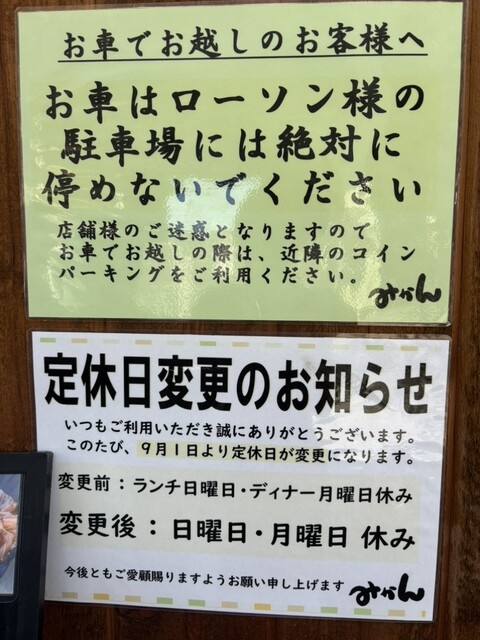 お車でお越しのお客様へ
お車はローソン様の
駐車場には絶対に
停めないでください
店舗様のご迷惑となりますので
お車でお越しの際は、近隣のコイン
パーキングをご利用ください。
みかん
定休日変更のお知らせ
いつもご利用いただき誠にありがとうございます。
このたび、9月1日より定休日が変更になります。
変更前：ランチ日曜日・ディナー月曜日休み
変更後：日曜日・月曜日 休み
今後ともご愛顧賜りますようお願い申し上げます
みかん